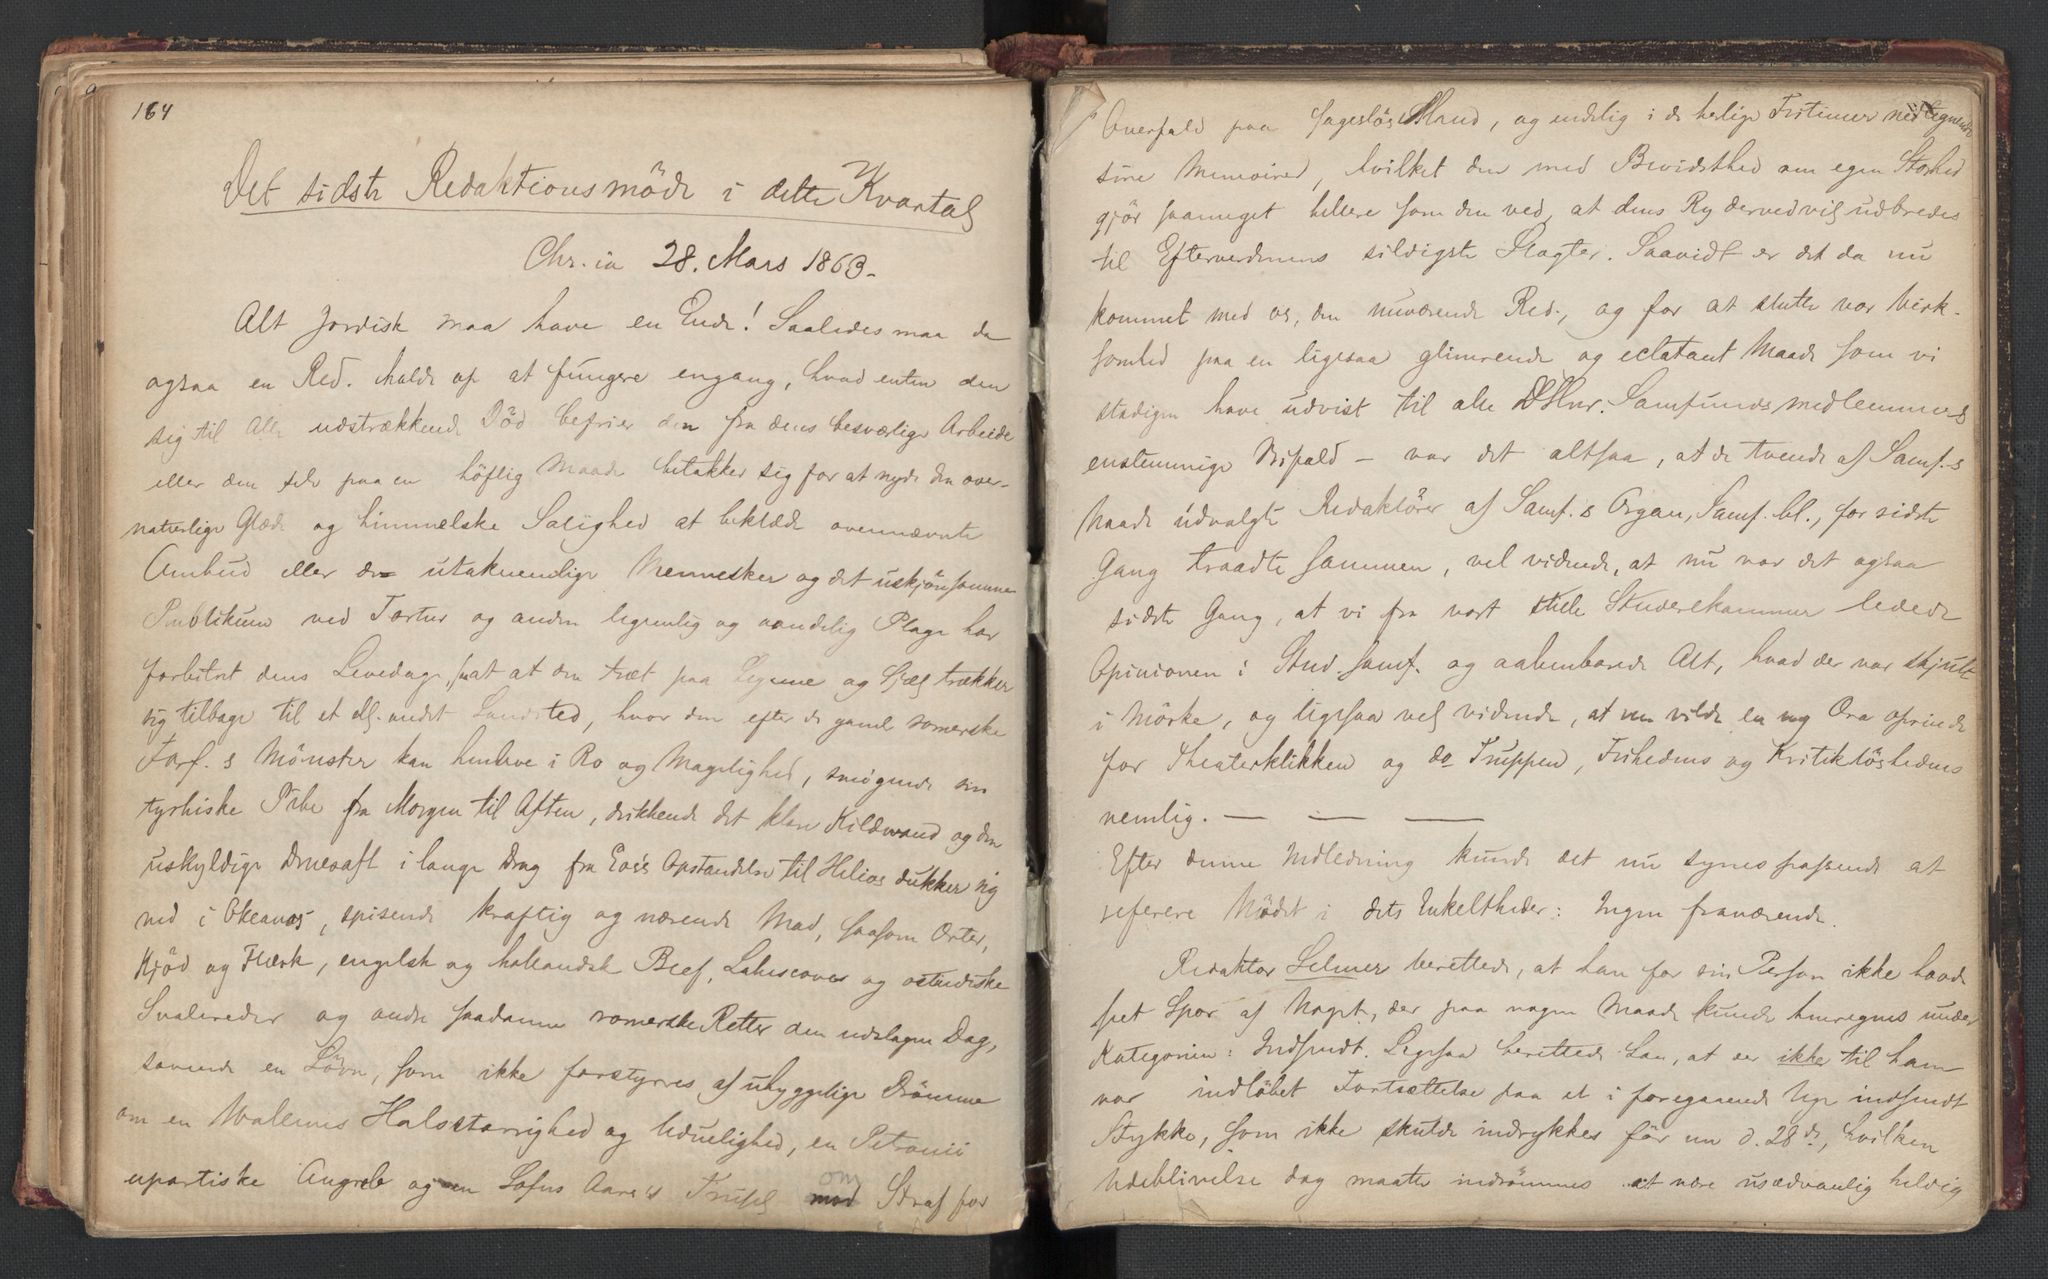 164
Det sidste Redaktionsmöde i dette Kvartal
Chr.ia 28. Mars 1863.
Alt Jordisk maa have en Ende! Saaledes maa da
ogsaa en Red. holde op at fungere engang, hvad enten den
sig til Alle udstrækkende Död befrier den fra dens besværlige Arbeide
eller den selv paa en höflig Maade betakker sig for at nyde den over-
naturlige Glæde og himmelske Salighed at beklæde ovennævnte
Ombud eller de utaknemlige Mennesker og det uskjönsomme
Publikum ved Tortur og anden legemlig og aandelig Plage har
forbitret dens Levedage, saa at den træt paa Legeme og Sjæl trækker
sig tilbage til et el. andet Landsted, hvor den efter de gamle romerske
Forf.s Mönster kan henleve i Ro og Magelighed, smögende sin
tyrkiske Pibe fra Morgen til Aften, drikkende det klare Kildevand og den
uskyldige Druesaft i lange Drag fra Eos's Opstandelse til Helios dukker sig
ned i Okeanos, spisende kraftig og nærende Mad, saasom Erter,
Kjöd og Flesk, engelsk og hollandsk Beef, Labscoves og ostindiske
Svalereder og andre saadanne romerske Retter den udslagne Dag,
sovende en Sövn, som ikke forstyrres af uhyggelige Drömme
om en Wallems Halsstarrighed og Uduelighed, en Petronii
upartiske Angreb og en Lofus Aars's Trusel med om Straf for
Overfald paa sageslös Mand, og endelig i de herlige Fritimer nedtegnende
sine Memoirer, hvilket den med Bevidsthed om egen Storhed
gjör saameget hellere som den ved, at dens Ry derved vil udbredes
til Efterverdenens sildigste Slægter. Saavidt er det da nu
kommet med os, den nuværende Red., og for at slutte vor Virk-
somhed paa en ligesaa glimrende og eclatant Maade som vi
stadigen have udvist til alle DHrr. Samfundsmedlemmers
enstemmige Bifald – var det altsaa, at de tvende af Samf.s
Naade udvalgte Redaktörer af Samf.s Organ, Samf.bl., for sidste
Gang traadte sammen, vel vidende, at nu var det ogsaa
sidste Gang, at vi fra vort stille Studerekammer ledede
Opinionen i Stud.samf. og aabenbarede Alt, hvad der var skjult
i Mörke, og ligesaa vel vidende, at nu vilde en ny Æra oprinde
for Theaterklikken og do Truppen, Frihedens og Kritiklöshedens
nemlig. — — —
Efter denne Indledning kunde det nu synes passende at
referere Mödet i dets Enkeltheder: Ingen fraværende.
Redaktör Selmer berettede, at han for sin Person ikke havde
seet Spor af Noget, der paa nogen Maade kunde henregnes under
Kategorien: Indsendt. Ligesaa berettede han, at der ikke til ham
var indlöbet Fortsættelse paa et i foregaaende Uge indsendt
Stykke, som ikke skulde indrykkes för nu d. 28de, hvilken
Udeblivelse dog maatte indrömmes at være usædvanlig heldig